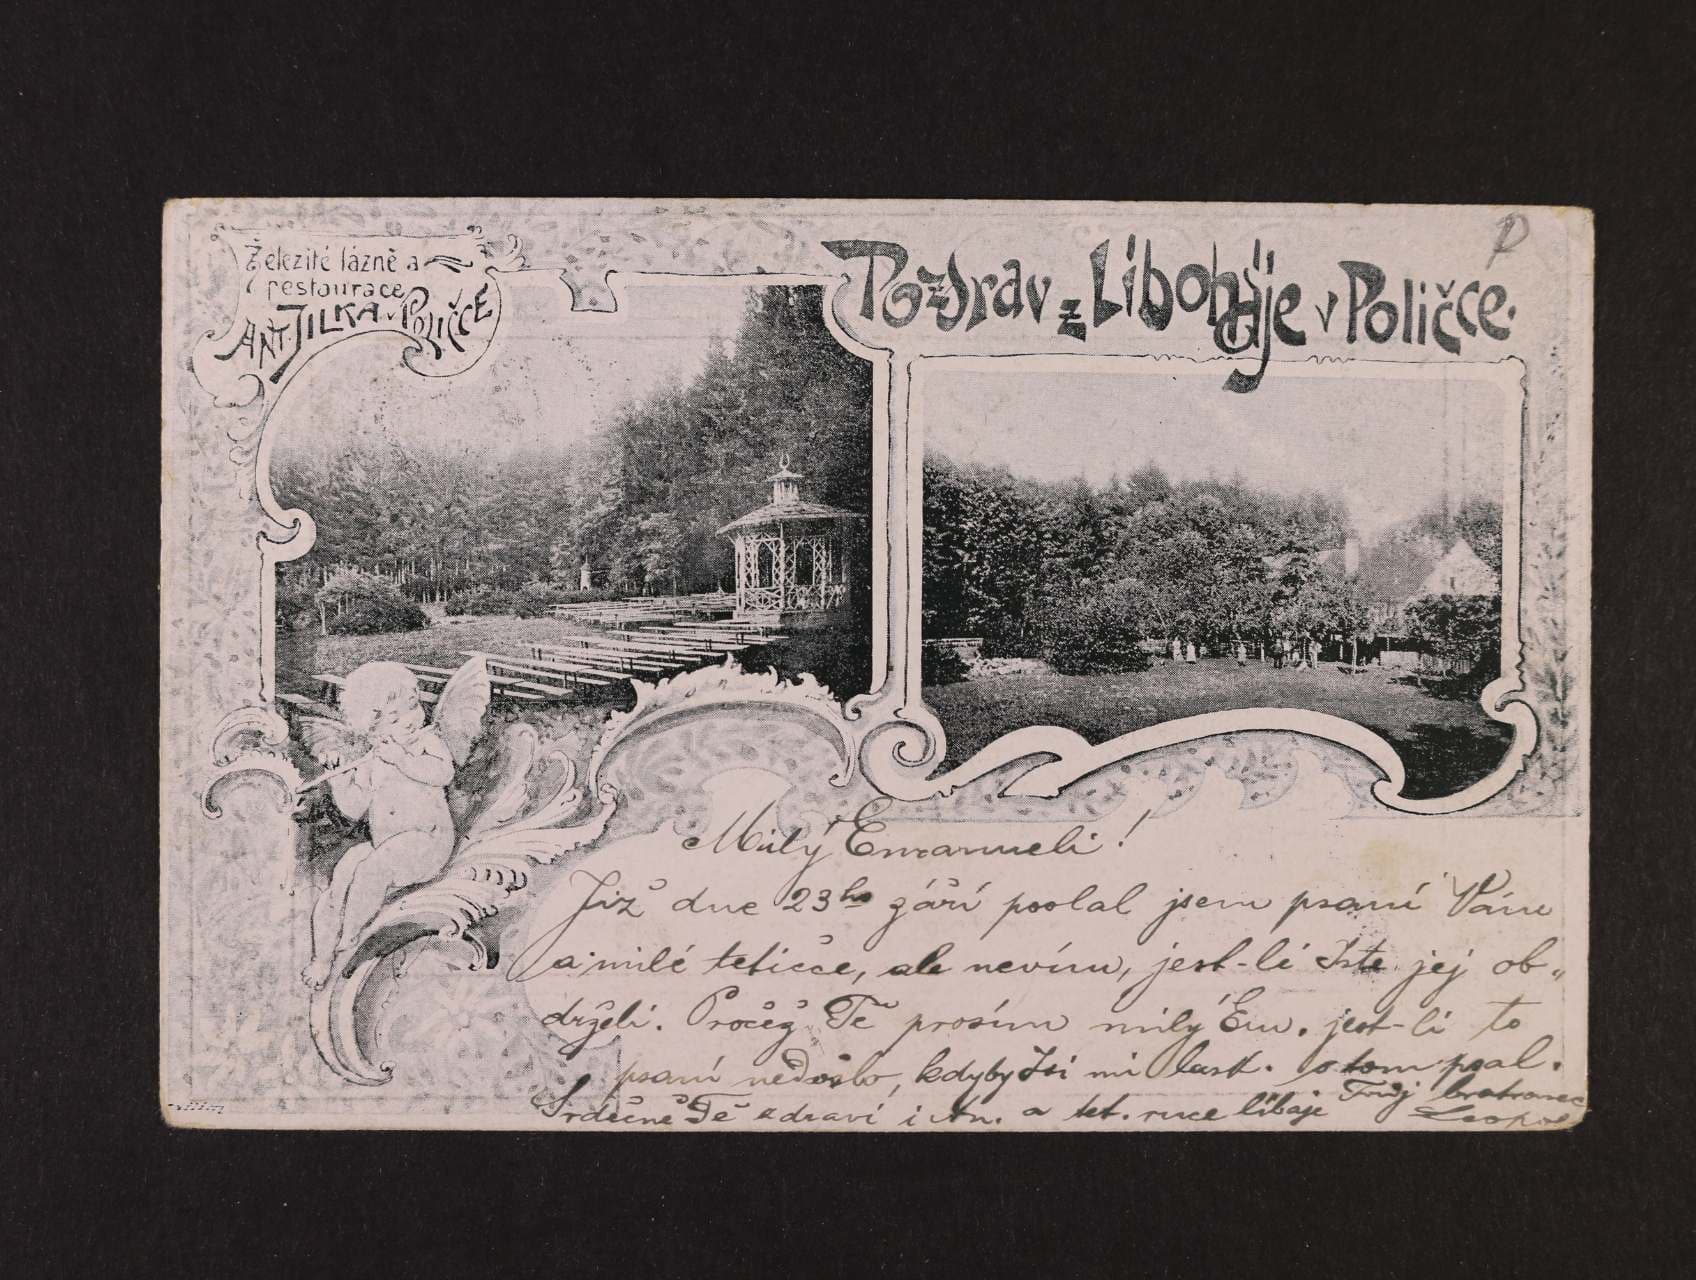 Železité lázně a
restaurace
ANT. JILKA v POLIČCE
Pozdrav z Liboháje v Poličce.
Milý Emanueli!
Již dne 23ho září poslal jsem psaní Vám
a milé tetičce, ale nevím, jest-li Jste jej ob-
drželi. Pročež Tě prosím milý Em. jest-li to
psaní nedošlo, kdyby Jsi mi lask. o tom psal.
Srdečně Tě zdraví i An. a tet. ruce líbaje Tvůj bratranec
Leopold